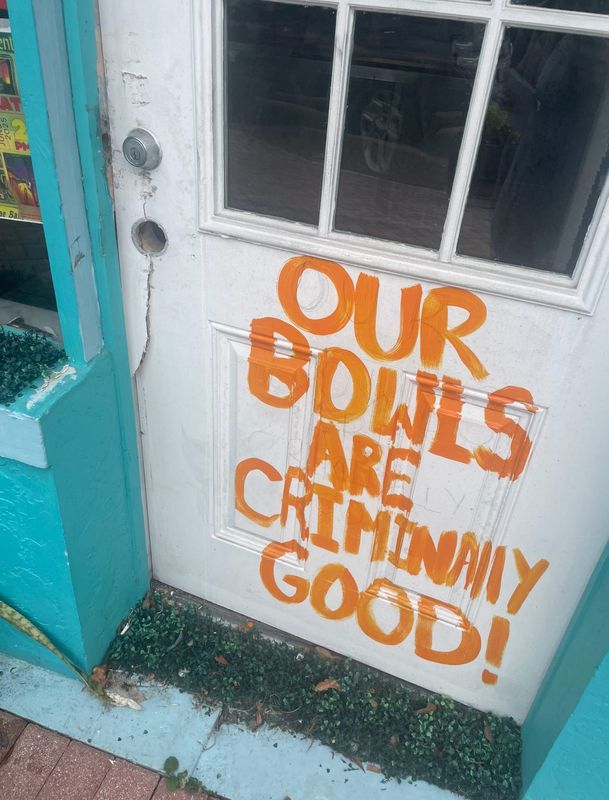 OUR
BOWLS
ARE
CRIMINALLY
GOOD!